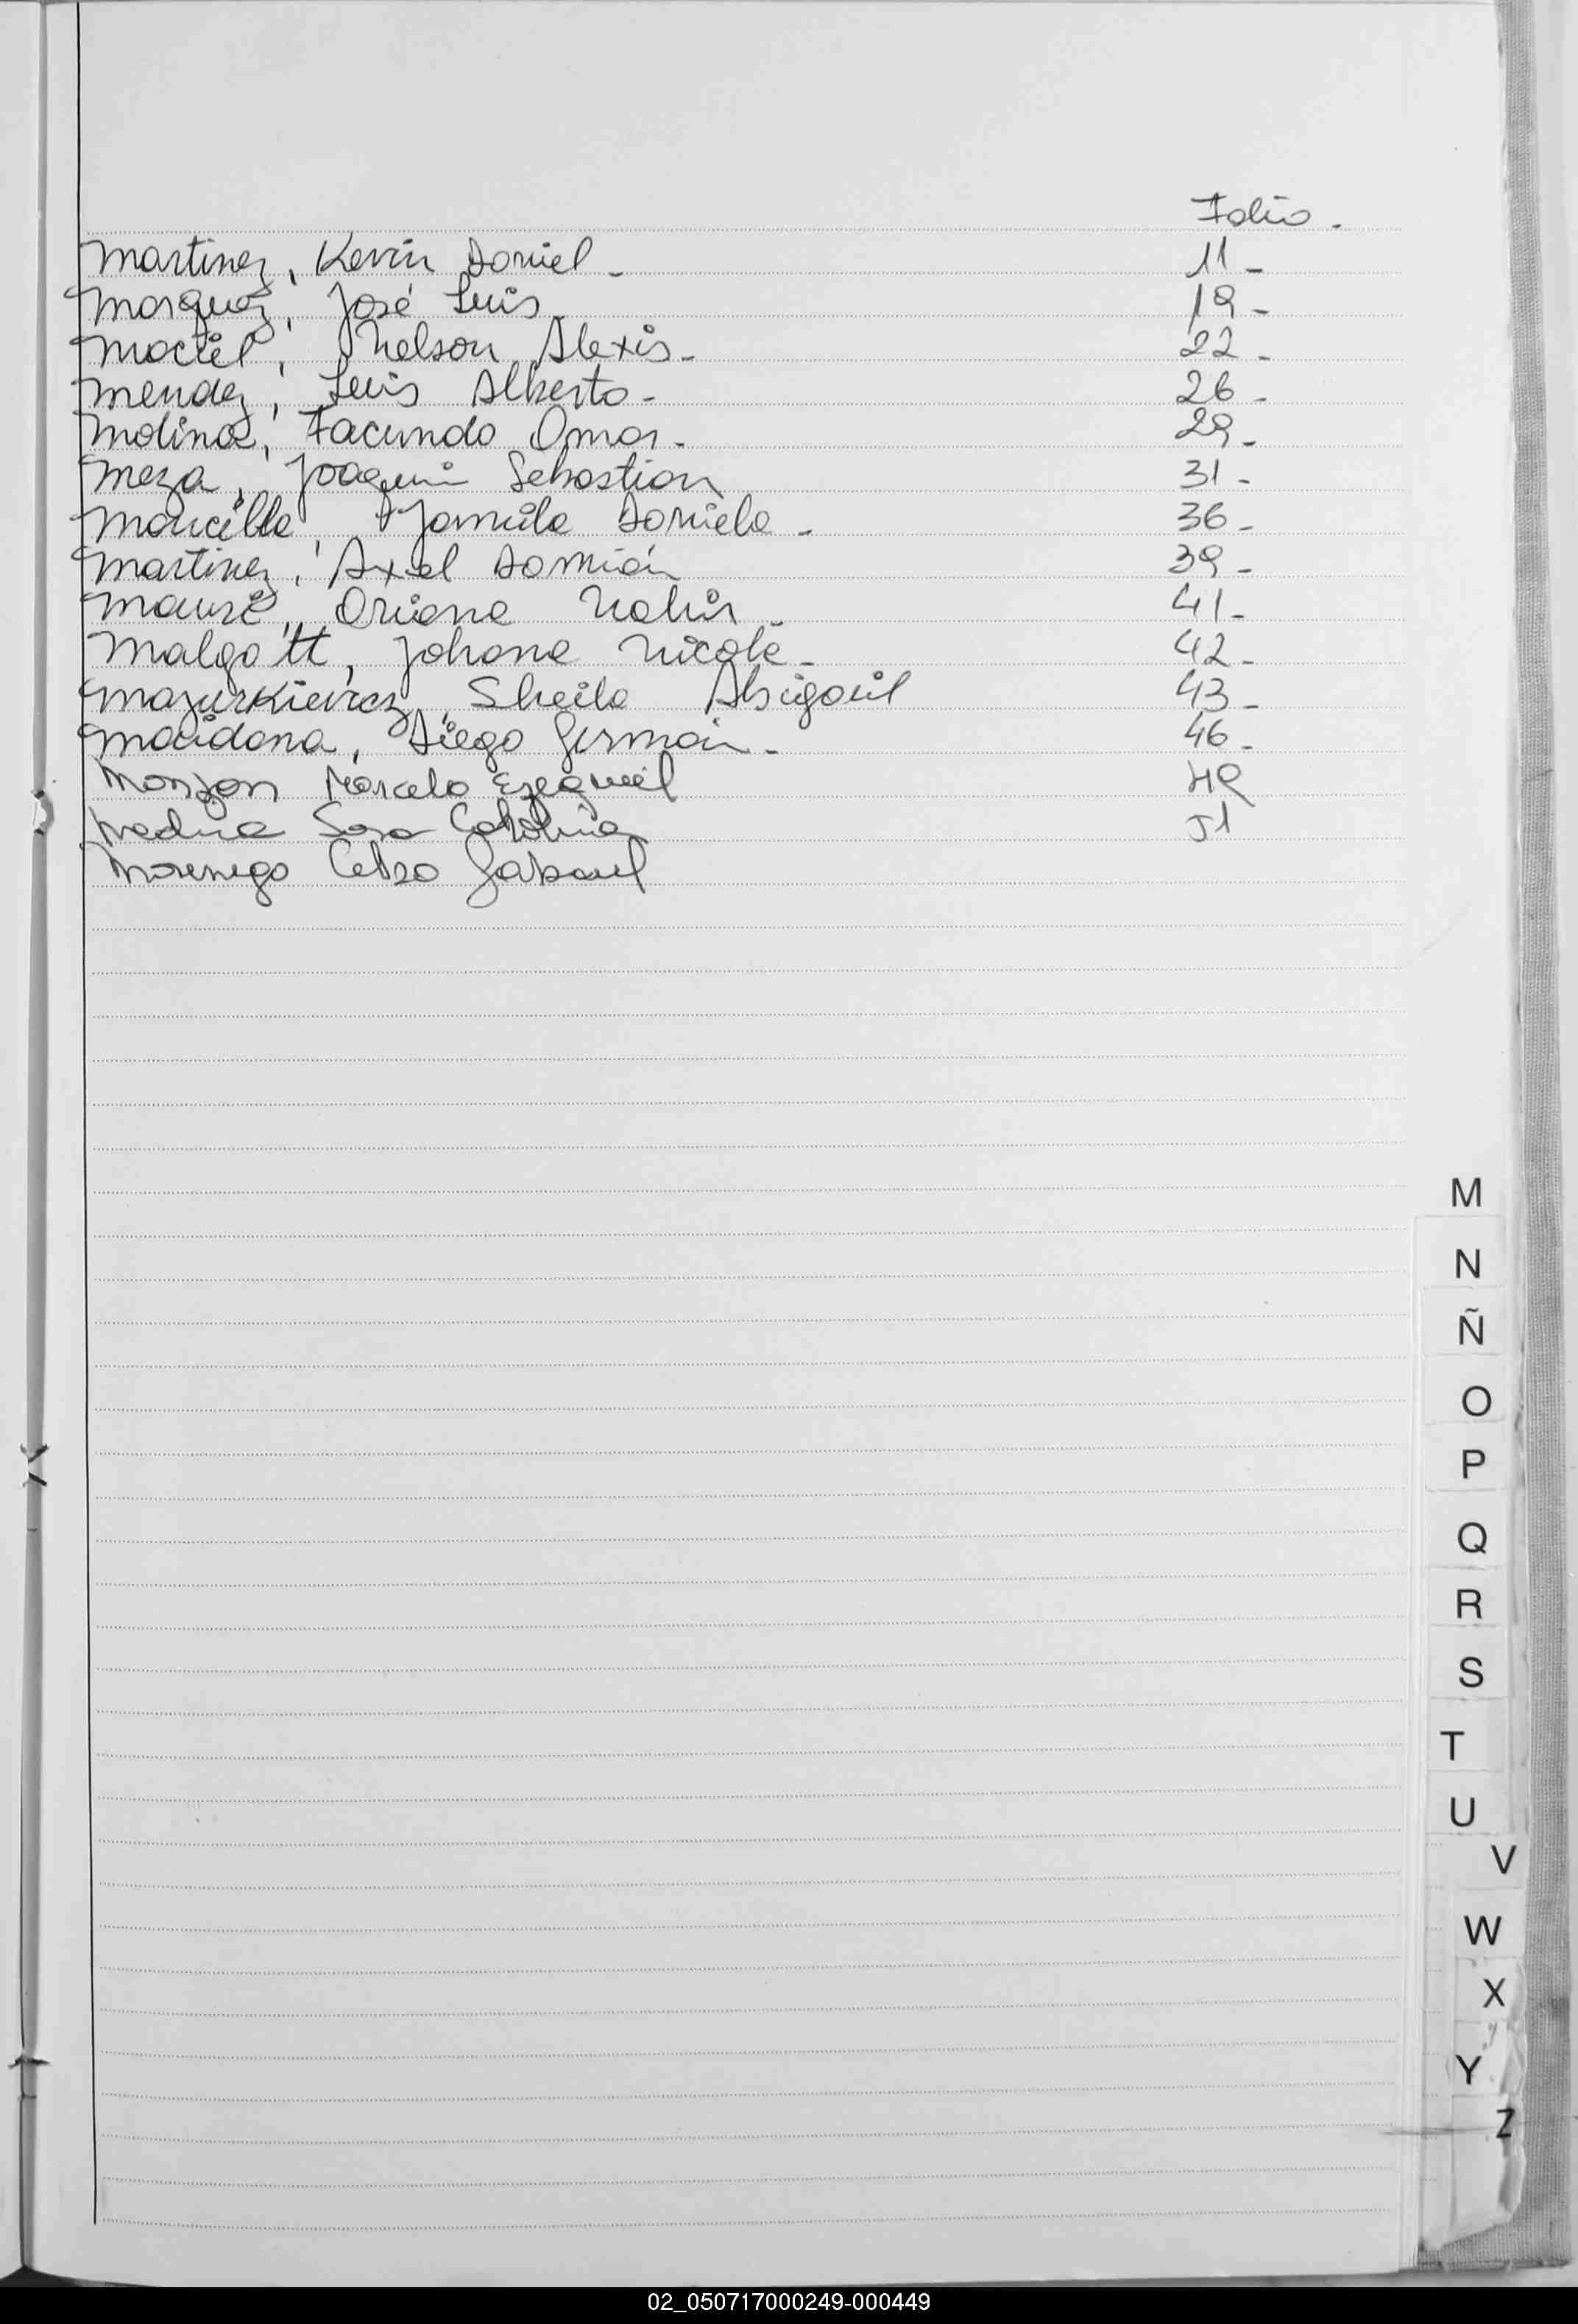 Folio.
Martinez, Kevin Daniel - 11 -
Marquez, José Luis - 19 -
Maciel, Nelson Alexis - 22 -
Mendez, Luis Alberto - 26 -
Molina, Facundo Omar - 29 -
Meza, Joaquin Sebastian 31 -
Mancilla, Yamila Daniela - 36 -
Martinez, Axel Damián 39 -
Mauré, Oriana Nahir - 41 -
Malgo tt, Johana Nicole - 42 -
Mazurkievicz, Sheila Abigail 43 -
Maidana, Diego Germán - 46 -
Monzon Marcelo Ezequiel 49
Medina Sosa Catalina 51
Morenigo Celso Gabriel
M
N
Ñ
O
P
Q
R
S
T
U
V
W
X
Y
Z
02_050717000249-000449